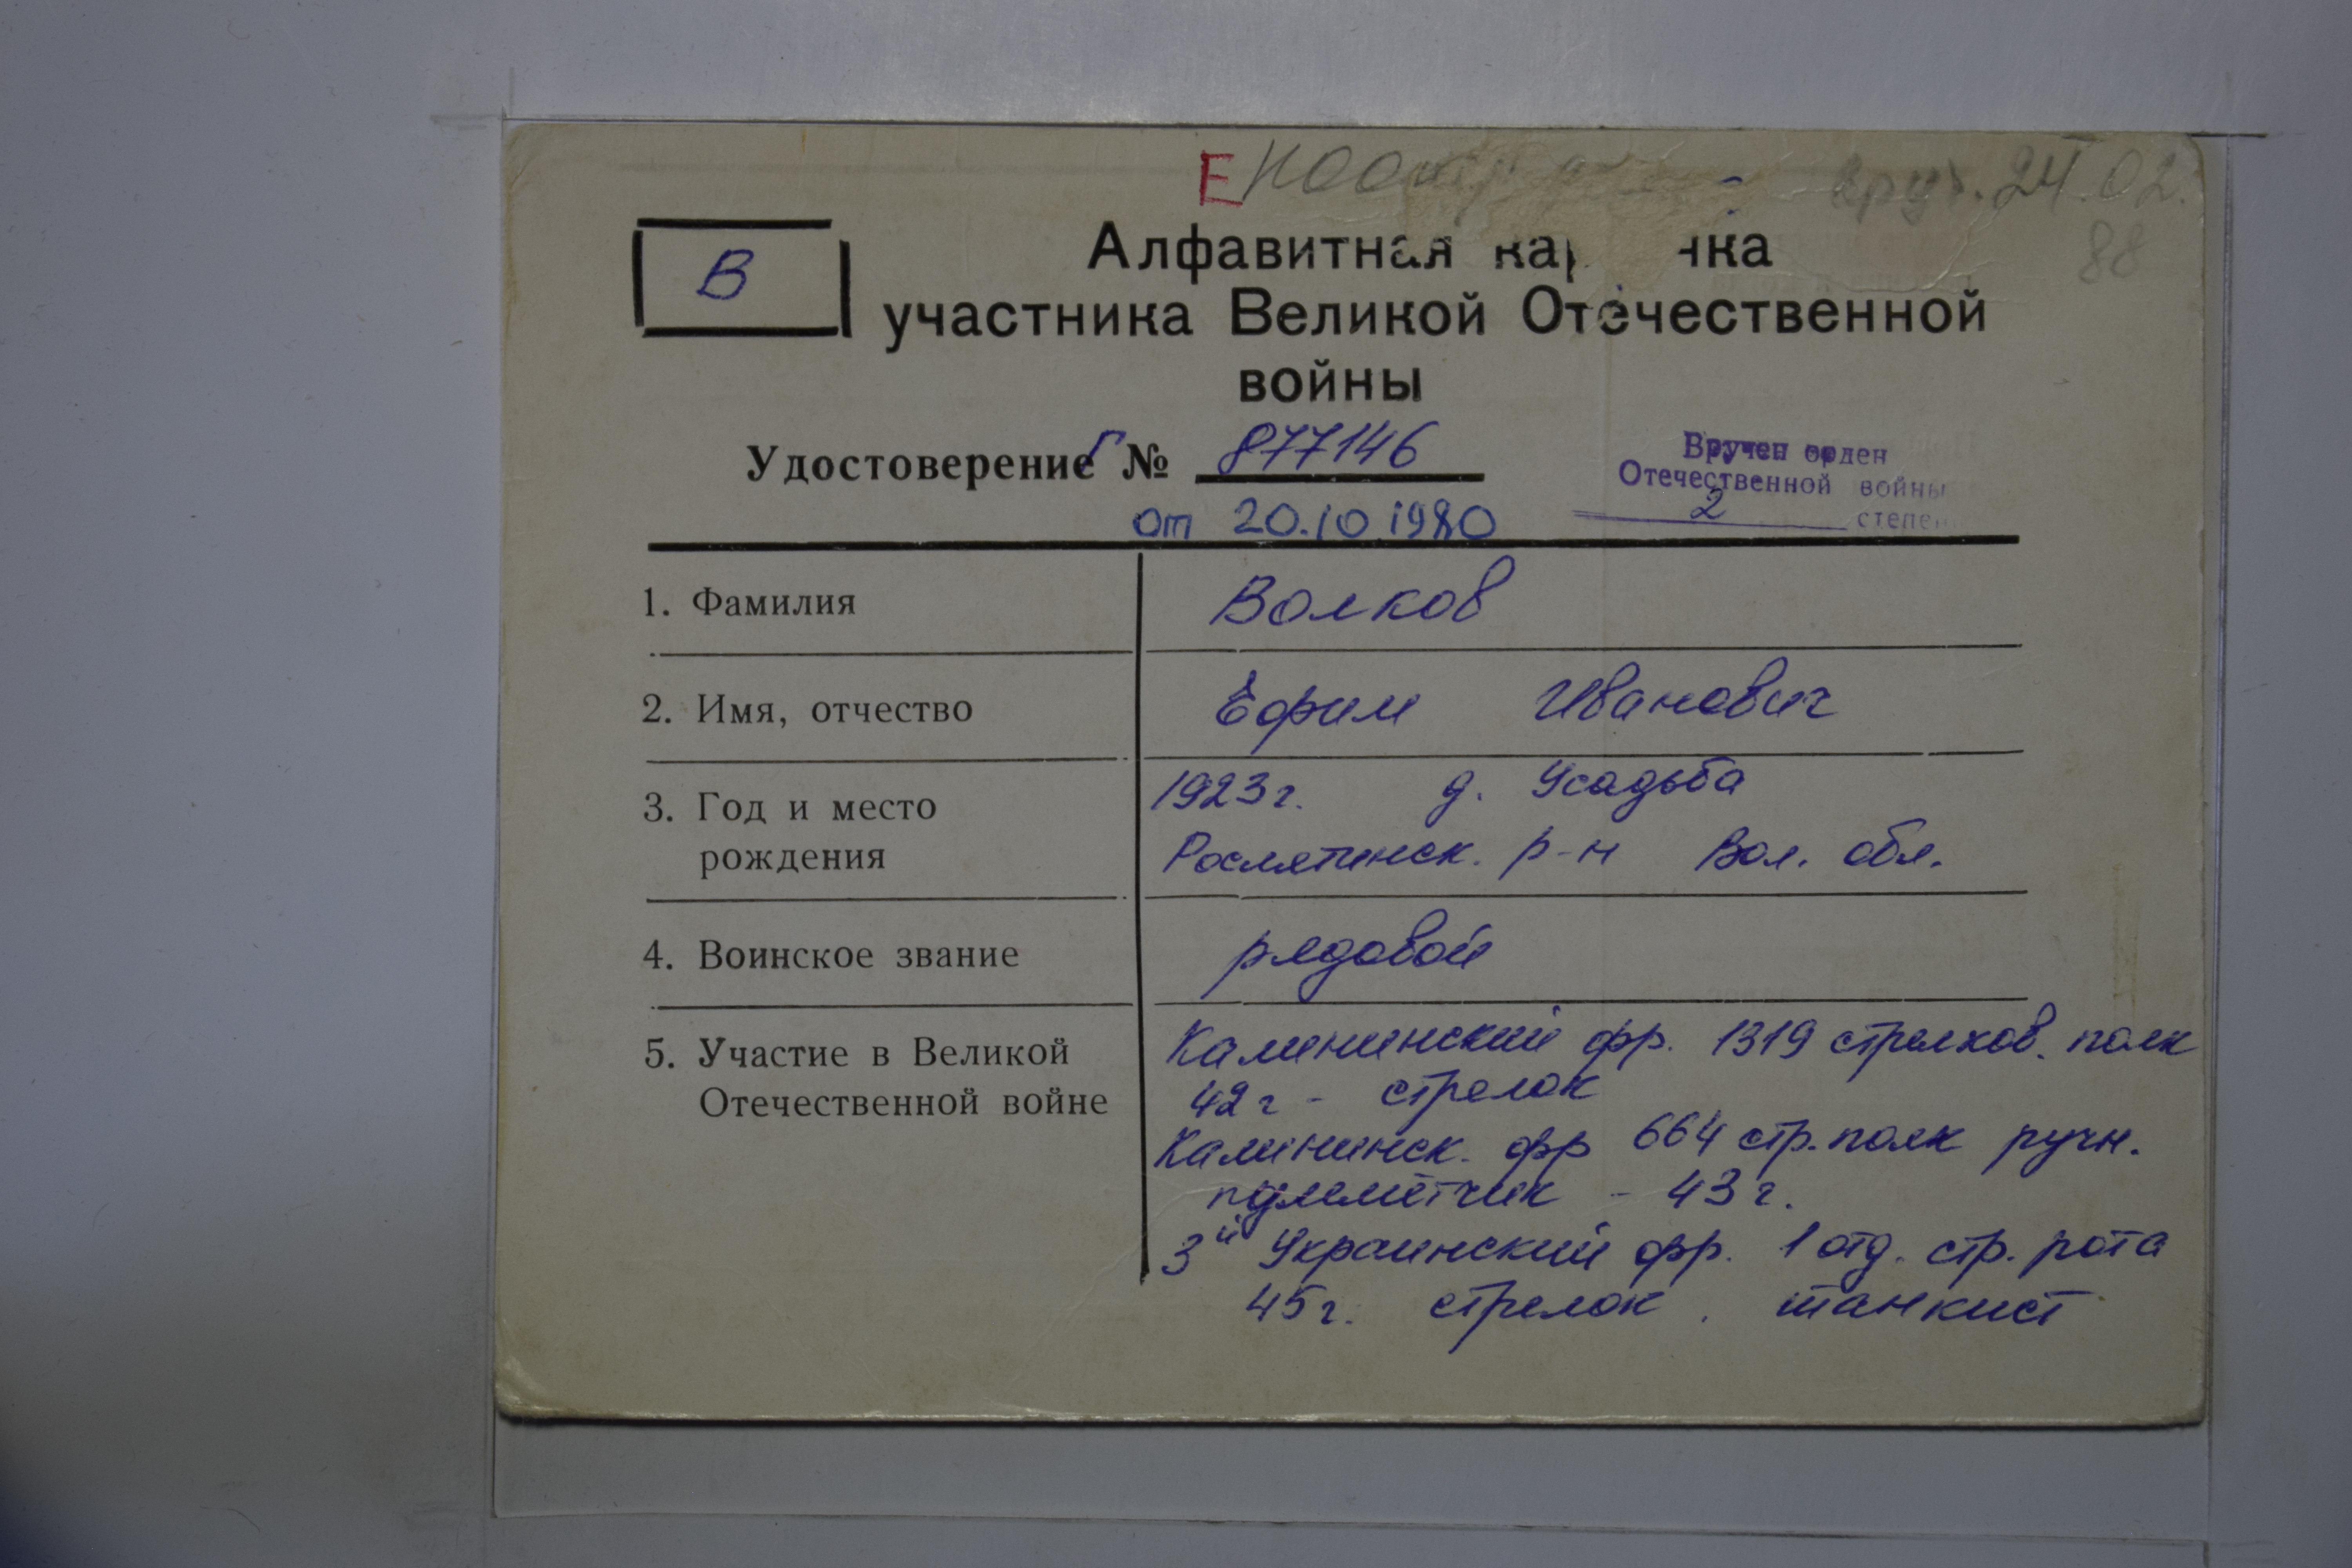 Е
вруч. 24.02.
88
В
Алфавитная
участника Великой Отечественной
войны
Удостоверение Г № 877146
от 20.10.1980
Вручен орден
Отечественной войны
2 степени
1. Фамилия Волков
2. Имя, отчество Ефим Иванович
3. Год и место 1923г. д. Усадьба
рождения Рослятинск. р-н Вол. обл.
4. Воинское звание рядовой
5. Участие в Великой Калининский фр. 1319 стрелков. полк
Отечественной войне 42г - стрелок
Калининск. фр 664 стр. полк ручн.
пулеметчик - 43г.
3й Украинский фр. 1 отд. стр. рота
45г. стрелок, танкист